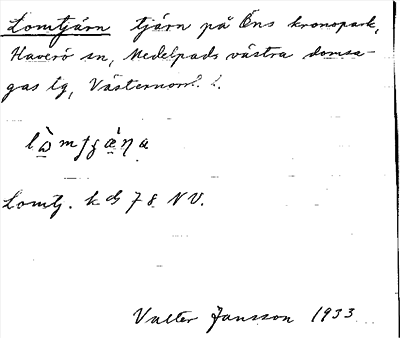 Lomtjärn tjärn på Öns kronopark,
Haverö sn, Medelpads västra domsa-
gas tg, Västernorrl. l.
Lomtj. kbl 78 NV.
Valter Jansson 1933